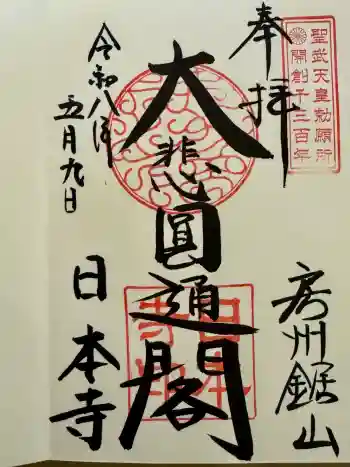 聖武天皇勅願所
開創千三百年
奉拝
房州鋸山
大悲圓通閣
令和八年
五月九日
日本寺